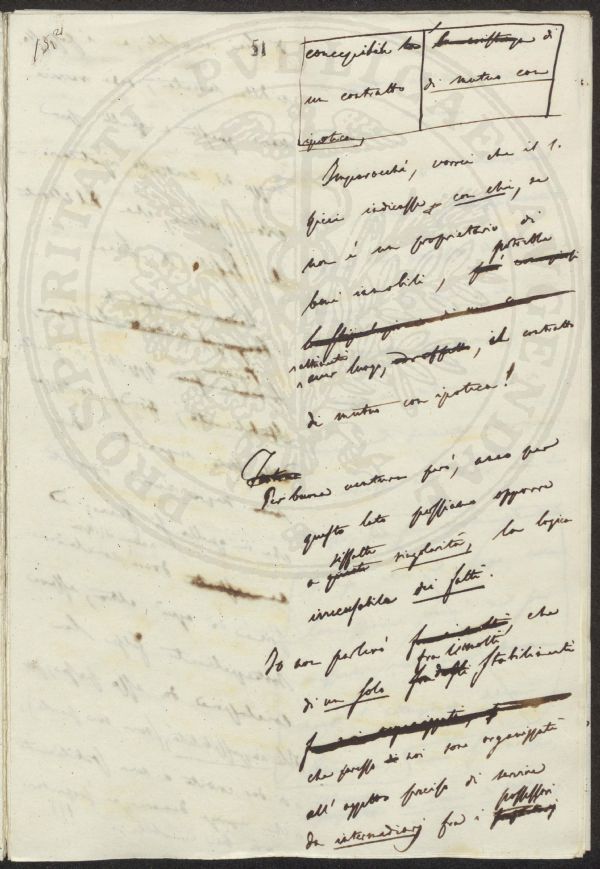 51
concepibile la la esistenza di
un contratto di mutuo con
ipoteca,
Imperocché, vorrei che il S.
mi indicasse con chi, se
non é un proprietario di
beni immobili, potrebbe
aver luogo, il contratto
di mutuo con ipoteca!
Per buona ventura peró, anco per
questo lato possiamo opporre
a siffatta singolarità, la logica
irrecusabile dei fatti.
Io non parlerò che
di un solo fra i molti stabilimenti
che presso noi sono organizzati
all'oggetto preciso di servire
da intermediarj fra i possessori
PROSPERITATI PUBLICAE AUGENDAE